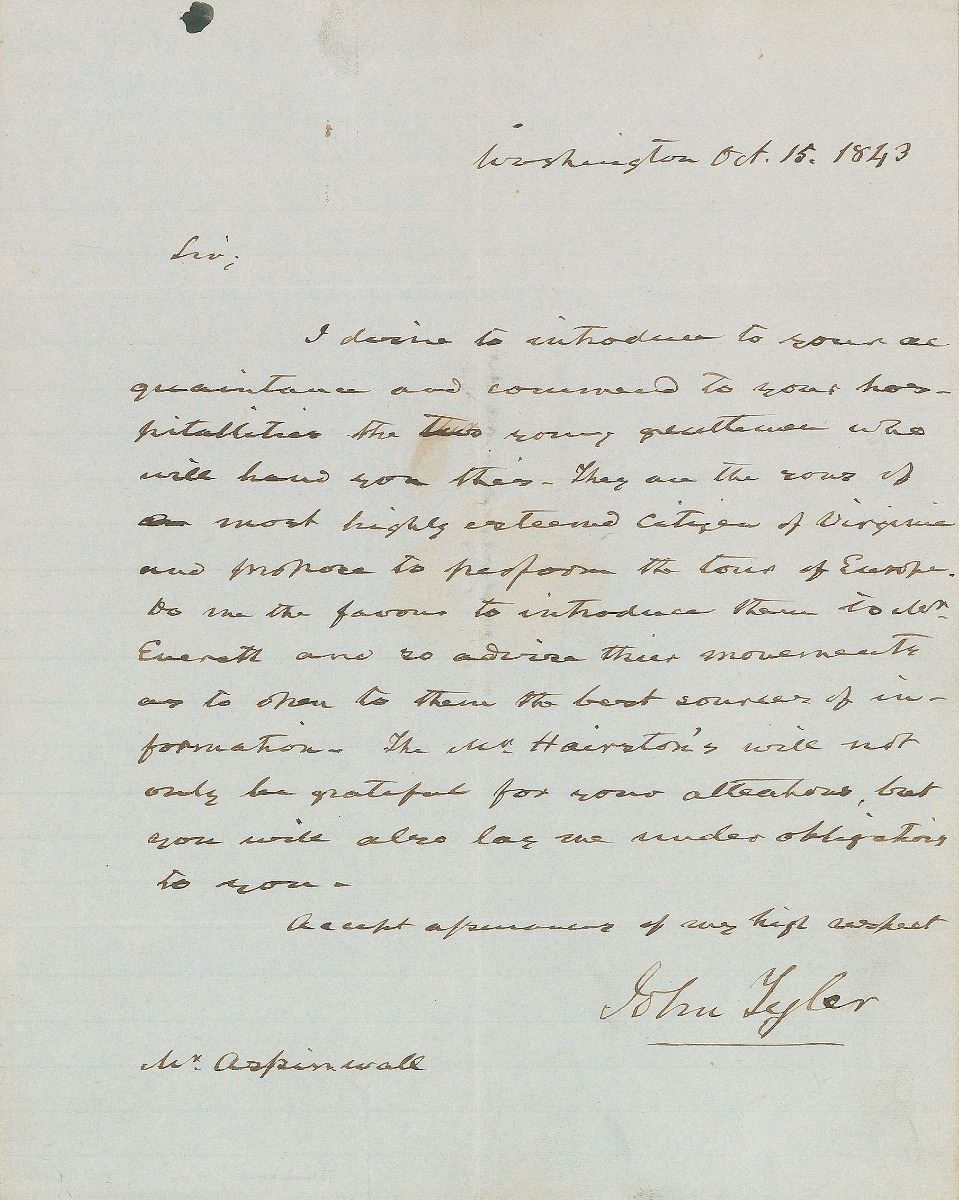 Washington Oct. 15. 1843
Sir;
I desire to introduce to your ac
quaintance and commend to your hos-
pitallities the two young gentlemen who
will hand you this - They are the sons of
a most highly esteemed citizen of Virginia
and propose to perform the tour of Europe.
Do me the favour to introduce them to Mr.
Everett and so advise their movements
as to open to them the best sources of in-
formation - The Mr. Hairston's will not
only be grateful for your attentions, but
you will also lay me under obligations
to you -
Accept assurances of my high respect
John Tyler
Mr. Aspinwall